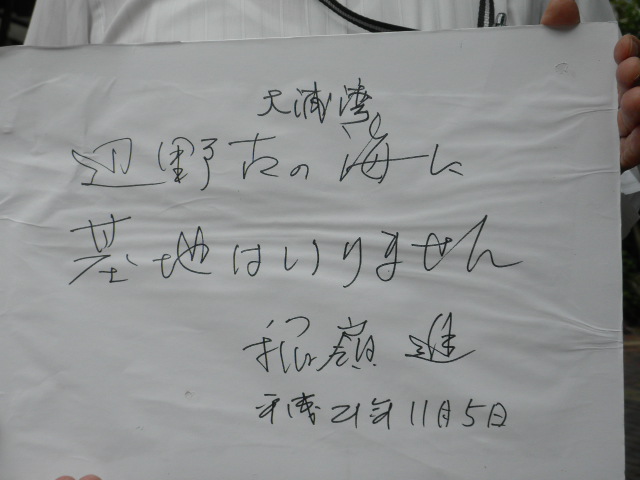 大浦湾
辺野古の海に
基地はいりません
稲嶺 進
平成21年11月5日